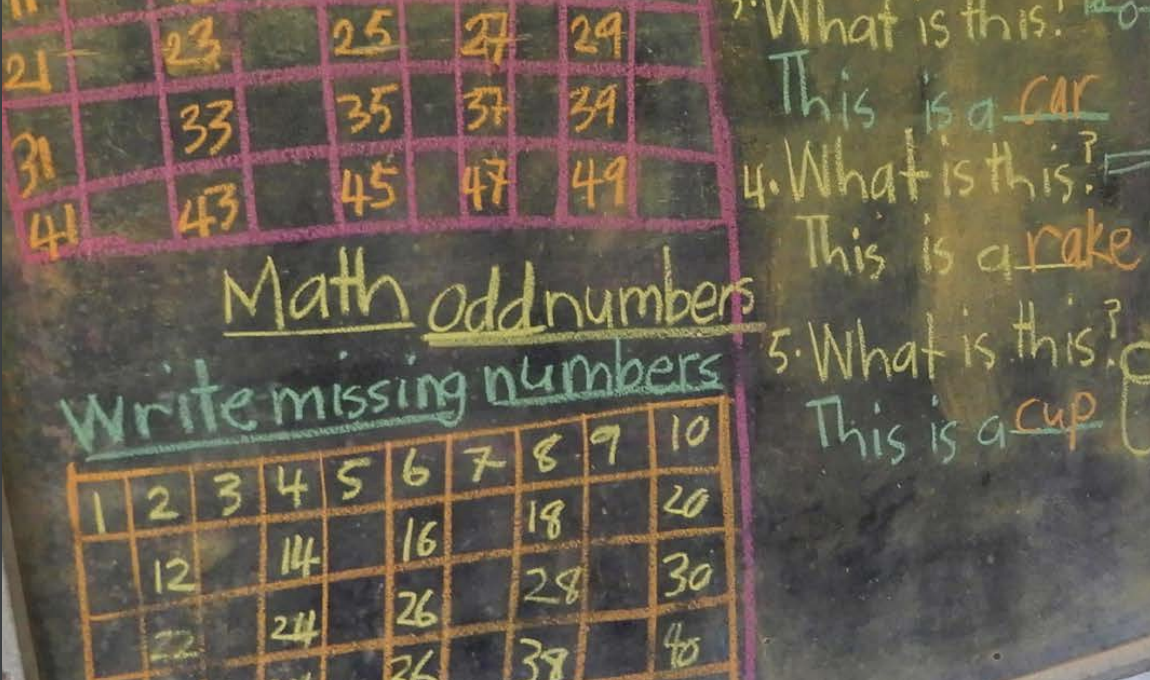 21 23 25 27 29
31 33 35 37 39
41 43 45 47 49
Math odd numbers
Write missing numbers
1 2 3 4 5 6 7 8 9 10
12 14 16 18 20
22 24 26 28 30
36 38 40
What is this?
This is a car
4. What is this?
This is a rake
5. What is this?
This is a cup